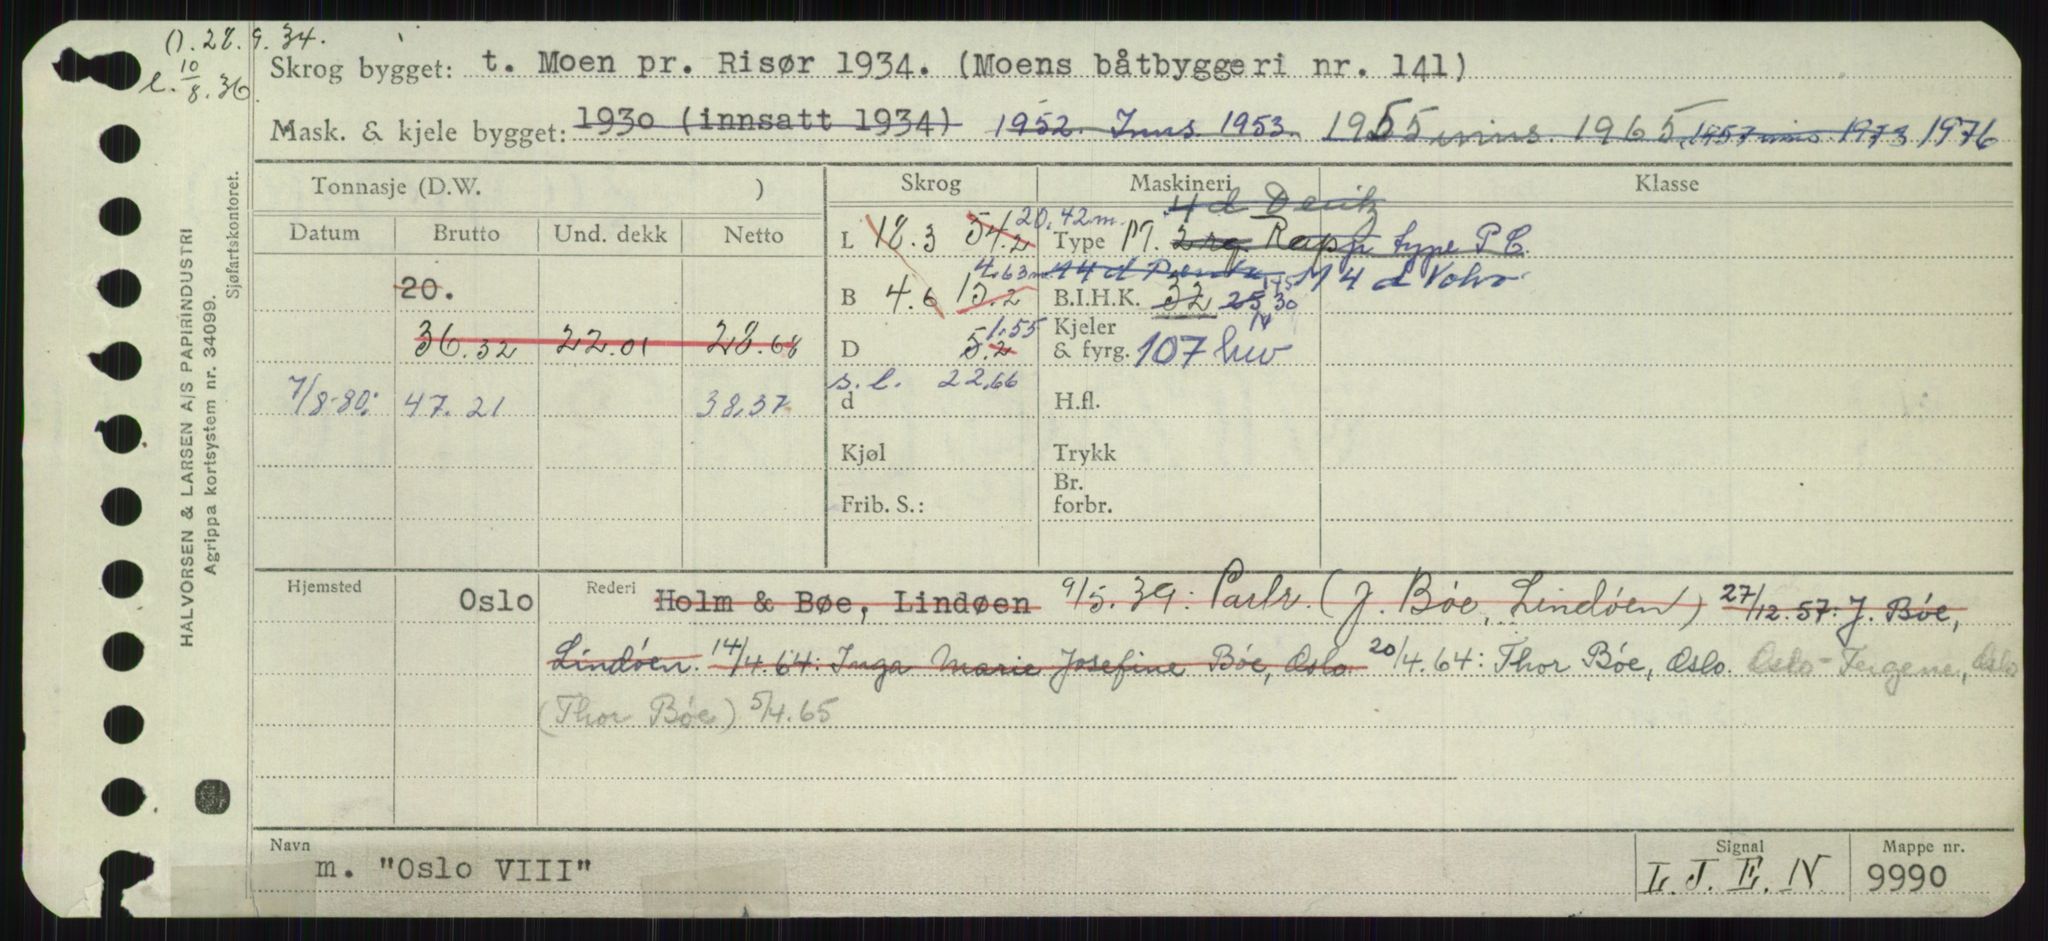 (). 28.9.34.
l. 10/8.36
Skrog bygget: t. Moen pr. Risør 1934. (Moens båtbyggeri nr. 141)
Mask. & kjele bygget: 1930 (innsatt 1934) 1952. Inns. 1953. 1955 inns. 1965, 1957 inns 1973 1976
HALVORSEN & LARSEN A/S PAPIRINDUSTRI
Agrippa kortsystem nr. 34099.
Sjøfartskontoret.
Tonnasje (D.W. ) Skrog Maskineri Klasse
4 d Deutz
Datum Brutto Und. dekk Netto
20,42 m.
L 18.3 54.2 Type M. 2 rg. Rapp type P C.
4.63 m 4 d Penta M 4 d Volvo
20.
B 4.6 15.2 B.I.H.K. 32 25, 30
1.55
36.32 22.01 28.68
D 5.2 Kjeler & fyrg. 107 hw
s. l. 22.66
7/8-80: 47.21 38,37
d H.fl.
Kjøl Trykk
Frib. S.: Br. forbr.
Hjemsted Oslo Rederi Holm & Bøe, Lindøen 9/5.39: Partr. (J. Bøe, Lindøen) 27/12.57: J. Bøe,
Lindöen. 14/4.64: Inga Marie Josefine Bøe, Oslo. 20/4.64: Thor Bøe, Oslo. Oslo-Fergene, Oslo
(Thor Bøe) 5/4.65
Navn Signal Mappe nr.
m. "Oslo VIII" L. J. E. N 9990